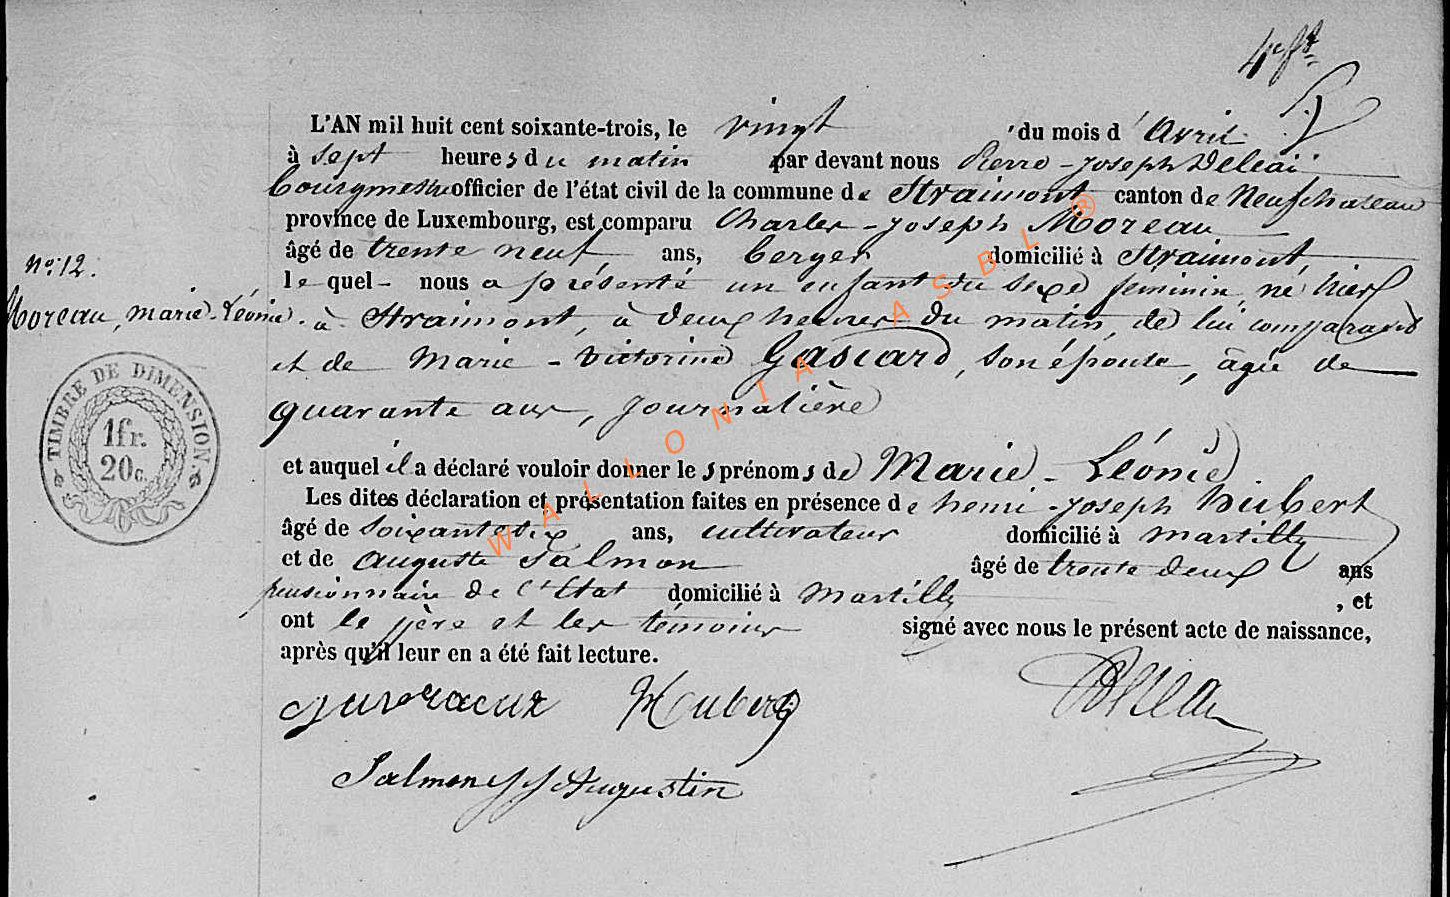 L'AN mil huit cent soixante-trois, le vingt du mois d'Avril
à sept heures du matin par devant nous Pierre-Joseph
Bourgmestre officier de l'état civil de la commune de Straimont canton de Neufchateau
province de Luxembourg, est comparu Charles-Joseph Moreau
âgé de trente neuf ans, berger domicilié à Straimont,
le quel nous a présenté un enfant du sexe feminin, né hier
N° 12.
Moreau, marie-Léonie. à Straimont, à deux heures du matin, de lui comparant
et de Marie-Victorine Gascard, son épouse, âgée de
quarante ans, journalière
TIMBRE DE DIMENSION.
1fr.
20c.
et auquel il a déclaré vouloir donner les prénoms de Marie-Léonie
Les dites déclaration et présentation faites en présence de henri-joseph hubert
âgé de soixante six ans, cultivateur domicilié à martilly
et de auguste Salmon âgé de trente deux ans
pensionnaire de l'Etat domicilié à Martilly, et
ont le père et les témoins signé avec nous le présent acte de naissance,
après qu'il leur en a été fait lecture.
Hubert
Salmon Augustin
WALLONIA ASBL ®